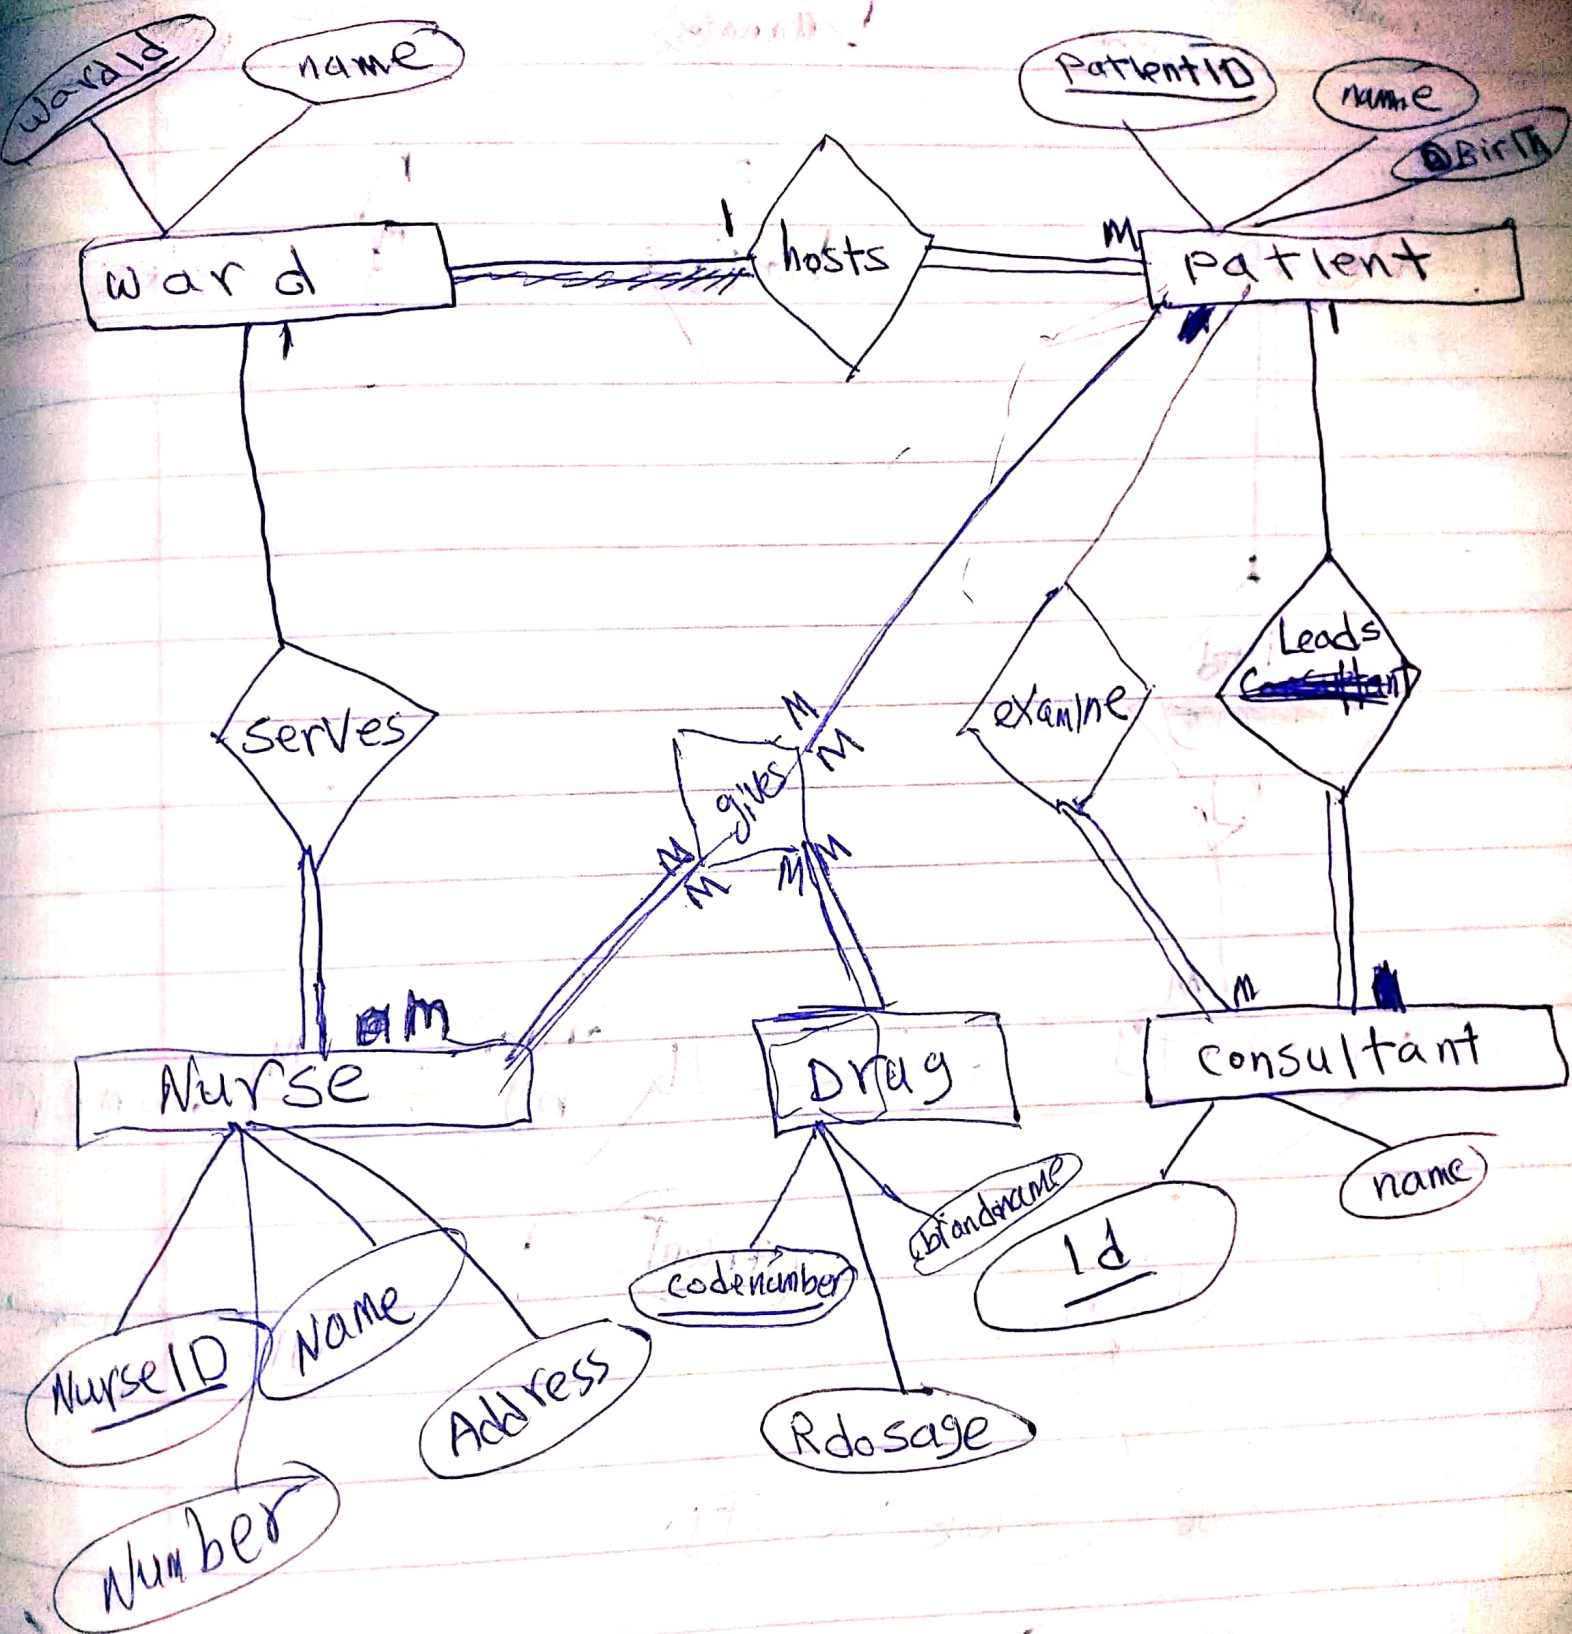 WardId
name
PatientID
name
Birth
1
1
M
ward
hosts
patient
1
1
Leads
serves
examine
M
M
gives
M
M
M
M
m
M
Nurse
Drug
consultant
NurseID
Name
Address
Number
codenumber
brandname
Rdosage
Id
name